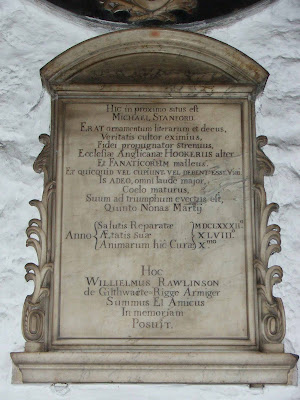 Hic in proximo situs est
MICHAEL STANFORD.
ERAT ornamentum literarum et decus,
Veritatis cultor eximius,
Fidei propugnator strenuus,
Ecclesiæ Anglicanæ HOOKERUS alter
Et FANATICORUM malleus.
Et quicquid VEL CUPIUNT, VEL DEBENT ESSE Viri
IS ADEO, omni laude major,
Cœlo maturus,
Suum ad triumphum evectus est,
Quinto Nonas Martij
Anno
Salutis Reparatæ
Ætatis Suæ XLVIII
Animarum hîc Curæ X.mo
HOC
WILLIELMUS RAWLINSON
de Gilthwaite-Rigge Armiger
Summus Ei Amicus
In memoriam
POSUIT.